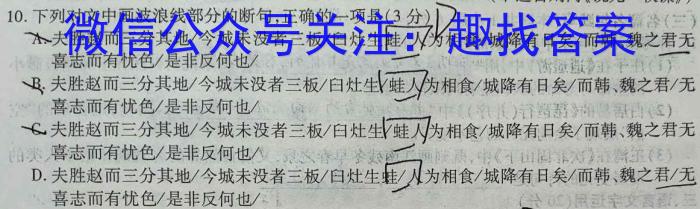 10.下列对文中画波浪线部分的断句,正确的一项是(3分)
微信公众号关注：趣找答案
A.夫胜赵而三分其地/今城未没者三板/臼灶生蛙/人为相食/城降有日矣/而韩、魏之君无
喜志而有忧色/是非反何也/
B.夫胜赵而三分其地/今城未没者三板/臼灶生/蛙人为相食/城降有日矣/而韩、魏之君/无
喜志而有忧色/是非反何也/
C.夫胜赵而三分其地/今城未没者三板/臼灶生/蛙人为相食/城降有日矣/而韩、魏之君无
喜志而有忧色/是非反何也/
D.夫胜赵而三分其地/今城未没者三板/臼灶生蛙/人为相食/城降有日矣/而韩、魏之君/无
喜志而有忧色/是非反何也/